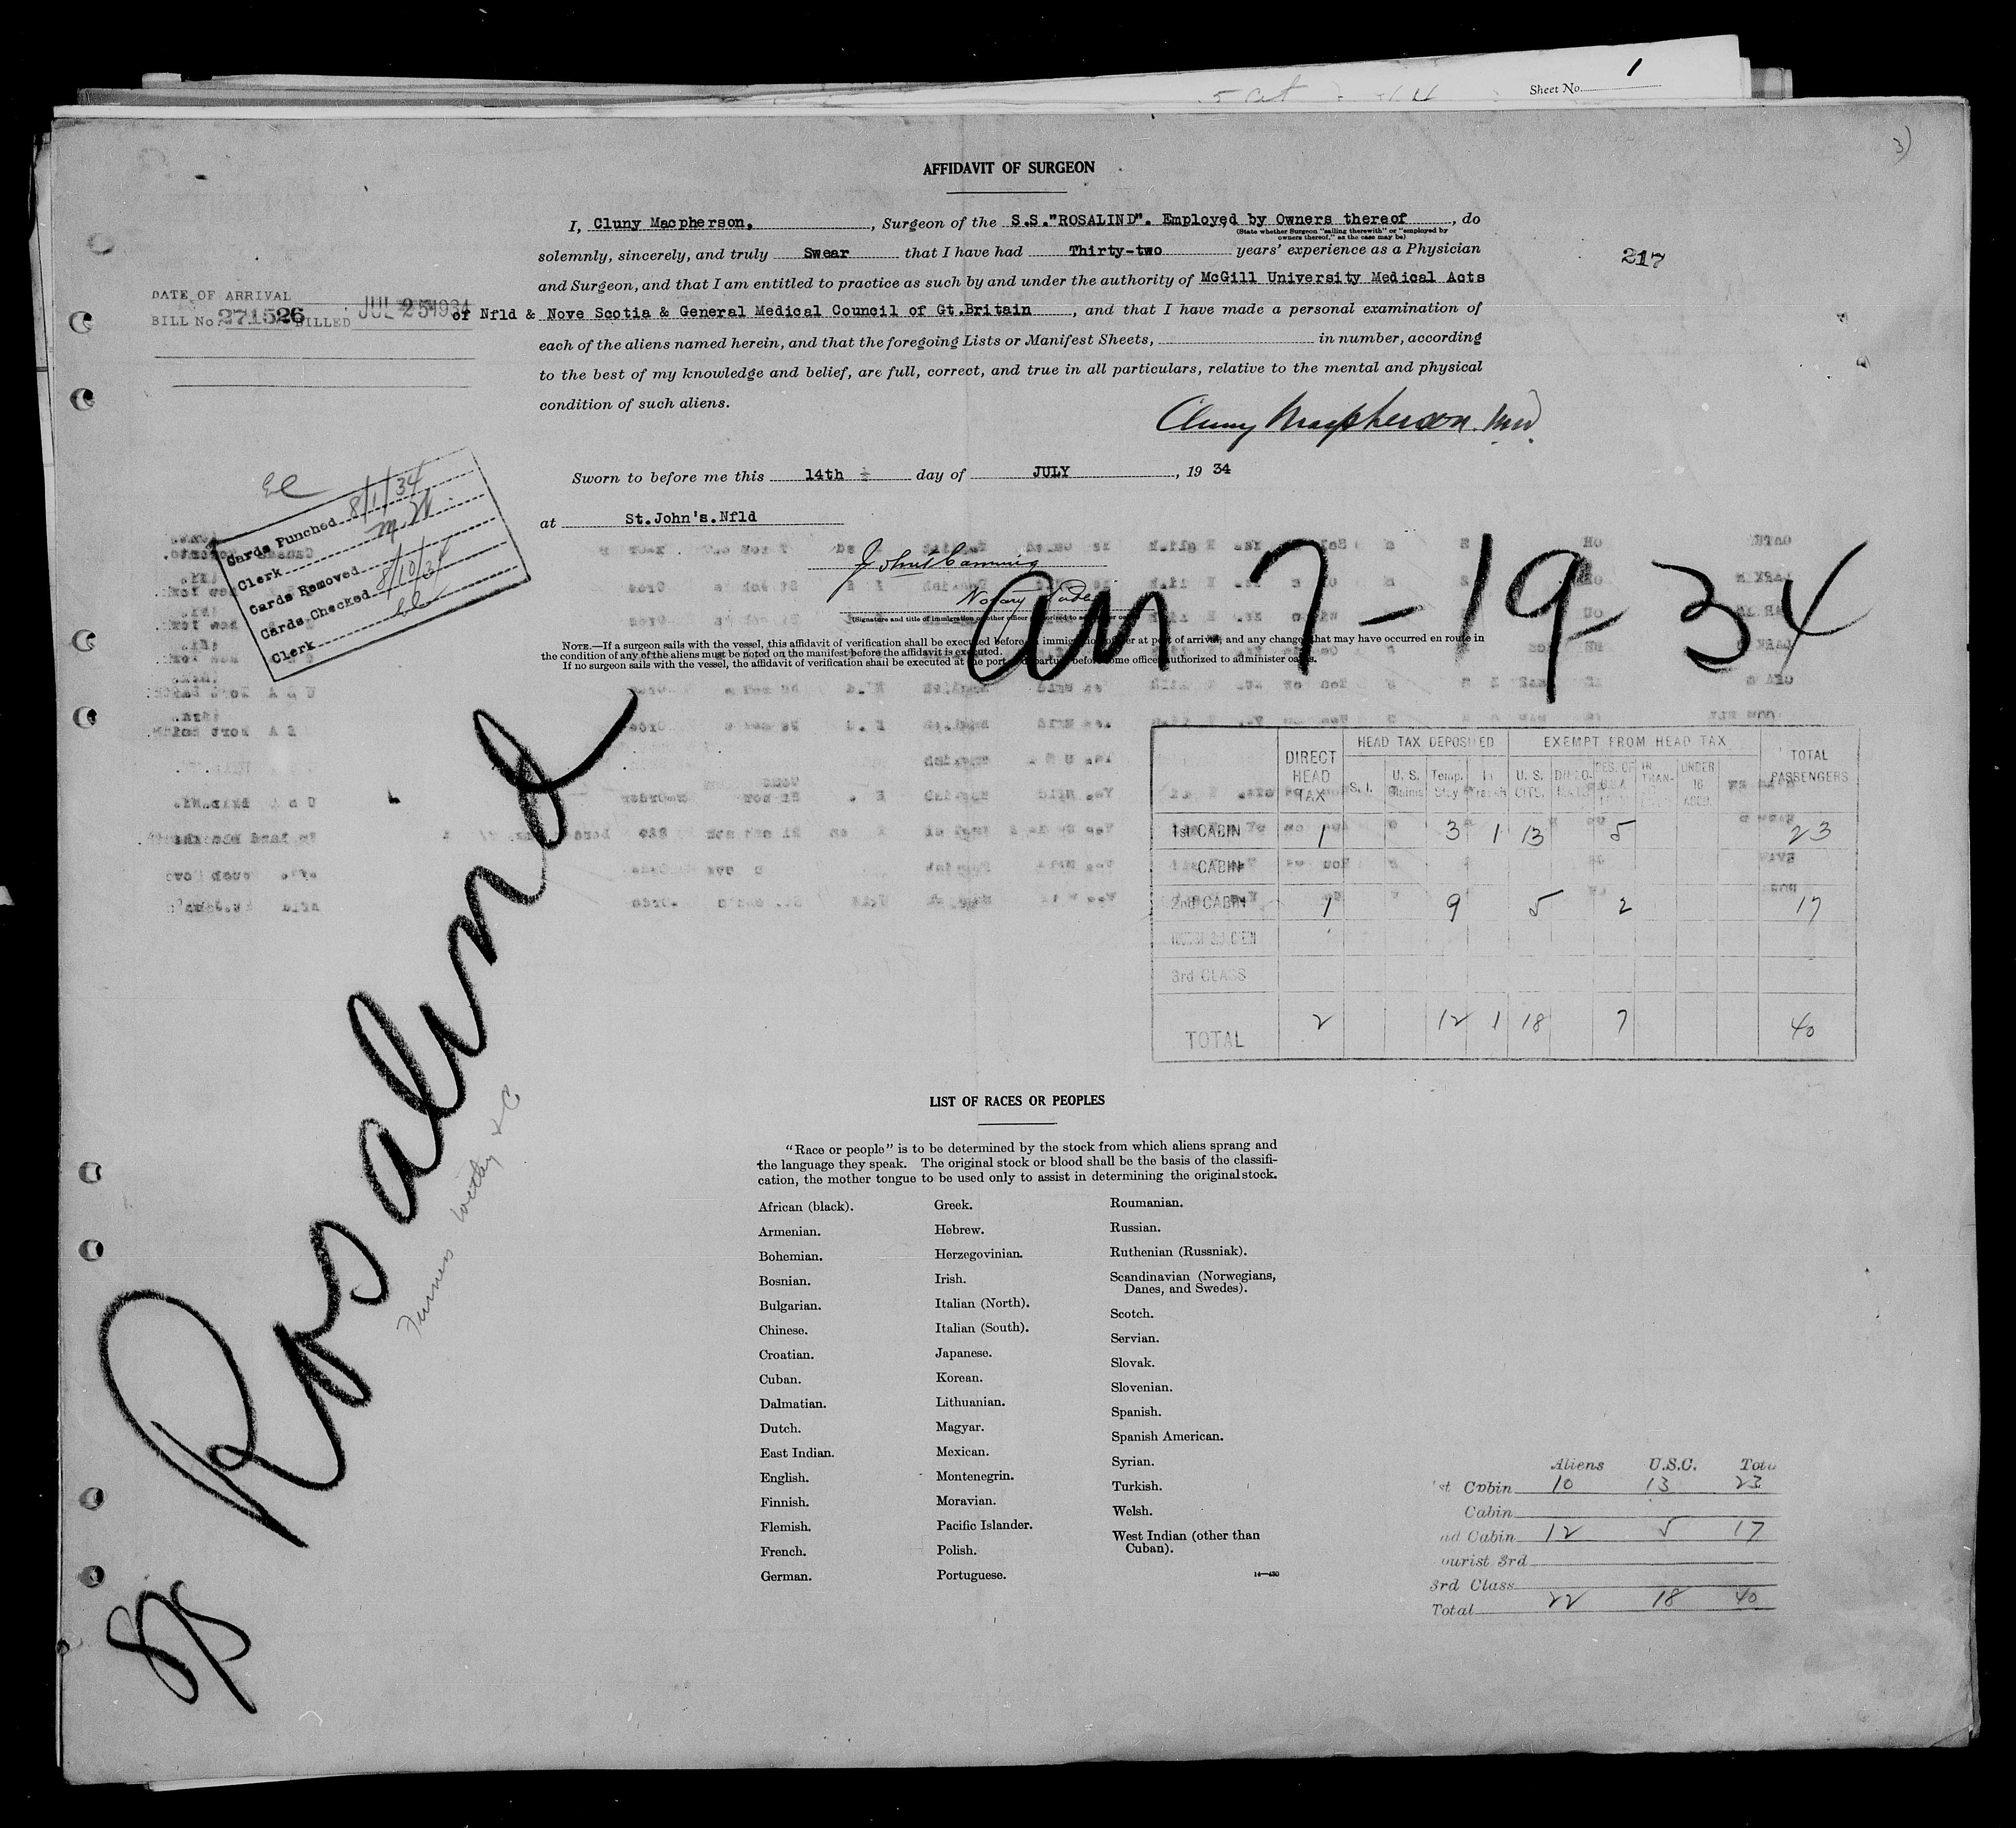 Sheet No. 1
3)
AFFIDAVIT OF SURGEON
I, Cluny Macpherson, , Surgeon of the S.S."ROSALIND". Employed by Owners thereof , do
(State whether Surgeon "sailing therewith" or "employed by
owners thereof," as the case may be)
solemnly, sincerely, and truly Swear that I have had Thirty-two years' experience as a Physician
217
and Surgeon, and that I am entitled to practice as such by and under the authority of McGill University Medical Acts
DATE OF ARRIVAL
BILL No. 271526 BILLED JUL 25 1934
of Nfld & Nove Scotia & General Medical Council of Gt.Britain , and that I have made a personal examination of
each of the aliens named herein, and that the foregoing Lists or Manifest Sheets, in number, according
to the best of my knowledge and belief, are full, correct, and true in all particulars, relative to the mental and physical
condition of such aliens.
Cluny Macpherson. MD.
Sworn to before me this 14th day of JULY , 19 34
at St.John's.Nfld
Cards Punched 8/1/34
Clerk
Cards Removed
Cards Checked 8/10/34
Clerk
Notary
am 7-19-34
NOTE.—If a surgeon sails with the vessel, this affidavit of verification shall be executed before immigration officer at port of arrival, and any changes that may have occurred en route in
the condition of any of the aliens must be noted on the manifest before the affidavit is executed.
If no surgeon sails with the vessel, the affidavit of verification shall be executed at the port departure before some officer authorized to administer oaths.
DIRECT HEAD TAX HEAD TAX DEPOSITED EXEMPT FROM HEAD TAX TOTAL PASSENGERS
S.I. U.S. Claims Temp. Stay In Transit U.S. CITS. DIPLOMATS RES. OF U.S.A. IN TRANSIT UNDER 16
1st CABIN 1 3 1 13 5 23
CABIN
2nd CABIN 1 9 5 2 17
TOURIST 3rd CABIN
3rd CLASS
TOTAL 2 12 1 18 7 40
Rosalind
Furness Withy & C
LIST OF RACES OR PEOPLES
"Race or people" is to be determined by the stock from which aliens sprang and
the language they speak. The original stock or blood shall be the basis of the classifi-
cation, the mother tongue to be used only to assist in determining the original stock.
African (black).
Armenian.
Bohemian.
Bosnian.
Bulgarian.
Chinese.
Croatian.
Cuban.
Dalmatian.
Dutch.
East Indian.
English.
Finnish.
Flemish.
French.
German.
Greek.
Hebrew.
Herzegovinian.
Irish.
Italian (North).
Italian (South).
Japanese.
Korean.
Lithuanian.
Magyar.
Mexican.
Montenegrin.
Moravian.
Pacific Islander.
Polish.
Portuguese.
Roumanian.
Russian.
Ruthenian (Russniak).
Scandinavian (Norwegians,
Danes, and Swedes).
Scotch.
Servian.
Slovak.
Slovenian.
Spanish.
Spanish American.
Syrian.
Turkish.
Welsh.
West Indian (other than
Cuban).
14—430
Aliens U.S.C. Tota
st Cabin 10 13 23
Cabin
nd Cabin 12 5 17
ourist 3rd
3rd Class
Total 22 18 40